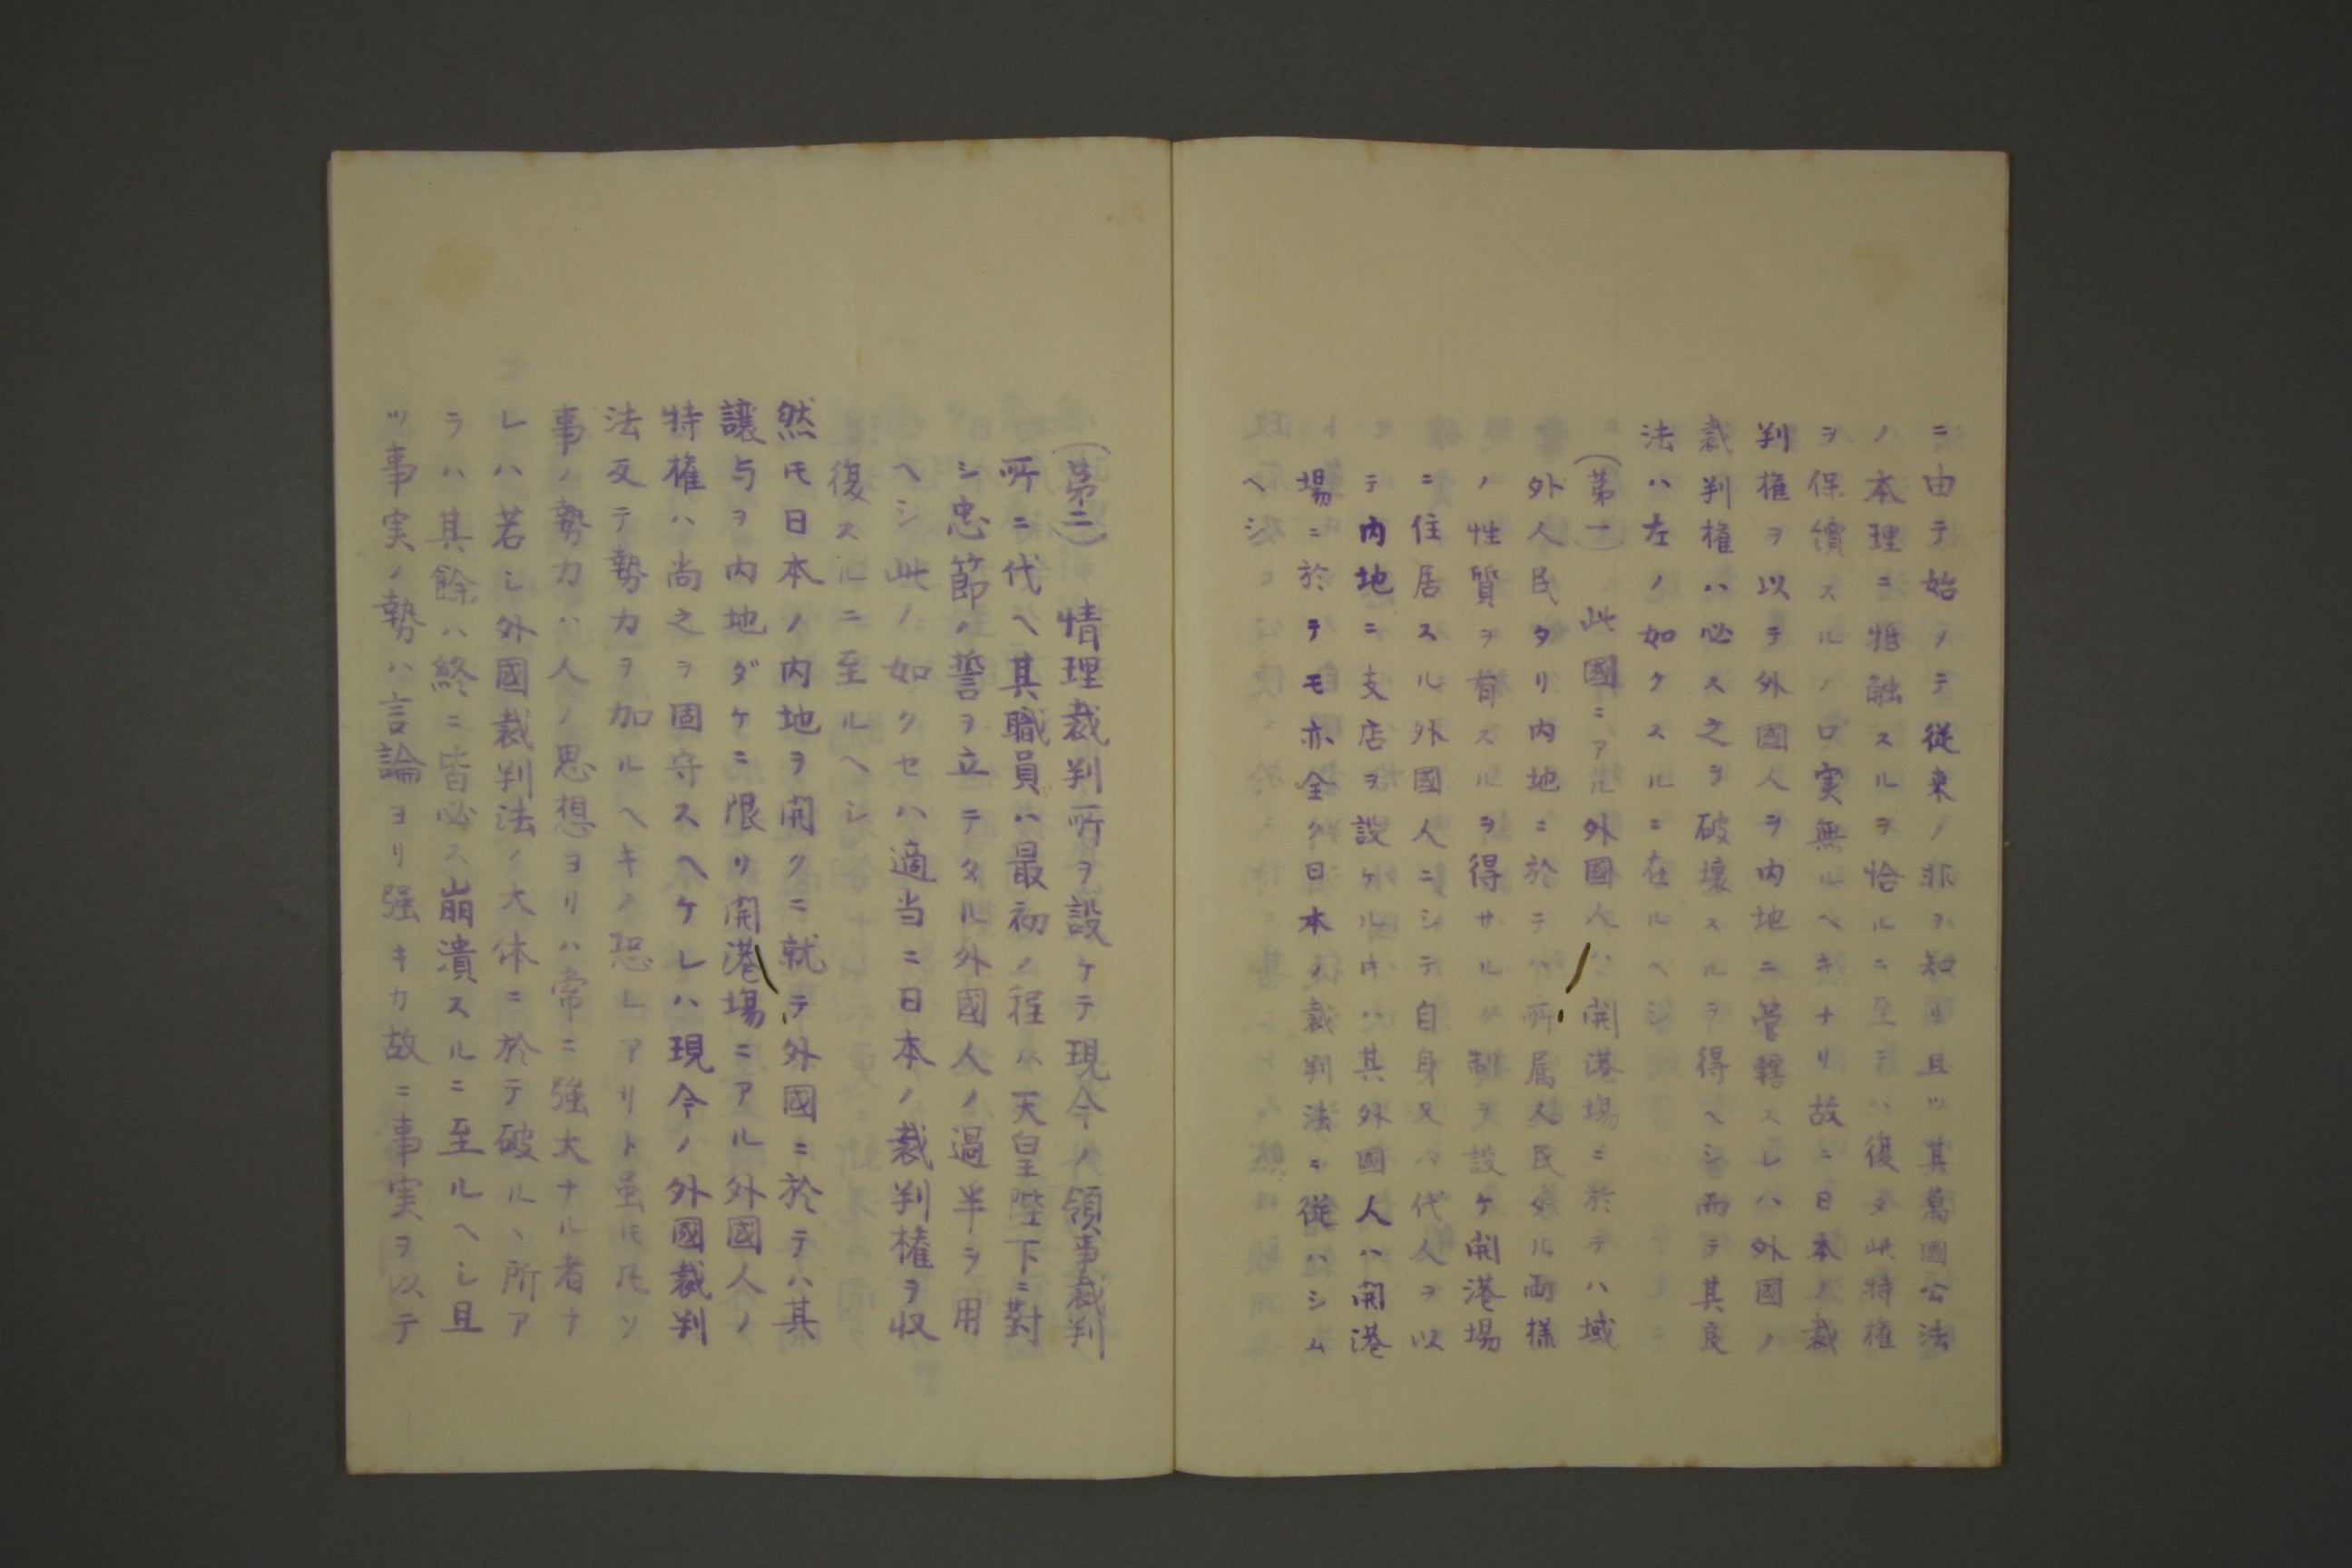 ニ由テ始メテ従来ノ非ヲ知リ且ツ其萬國公法
ノ本理ニ牴触スルヲ恰ルニ至ラハ復タ此特権
ヲ保續スルノ口実無ルヘキナリ故ニ日本ノ裁
判権ヲ以テ外國人ヲ内地ニ管轄スレハ外國ノ
裁判権ハ必ス之ヲ破壊スルヲ得ヘシ而テ其良
法ハ左ノ如クスルニ在ルヘシ
(第一) 此國ニアル外國人ハ開港場ニ於テハ域
外人民タリ内地ニ於テハ所属人民タル両様
ノ性質ヲ有スルヲ得サルノ制ヲ設ケ開港場
ニ住居スル外國人ニシテ自身又ハ代人ヲ以
テ内地ニ支店ヲ設ケル圷ハ其外國人ハ開港
場ニ於テモ亦全ク日本ノ裁判法ニ従ハシム
ヘシ
(第二) 情理裁判所ヲ設ケテ現今ノ領事裁判
所ニ代ヘ其職員ハ最初ノ程ハ天皇陛下ニ對
シ忠節ノ誓ヲ立テタル外國人ノ過半ヲ用
ヘシ此ノ如クセハ適当ニ日本ノ裁判権ヲ収
復スルニ至ルヘシ
然圧日本ノ内地ヲ開クニ就テ外國ニ於テハ其
譲与ヲ内地ダケニ限リ開港場ニアル外國人ノ
特権ハ尚之ヲ固守スヘケレハ現今ノ外國裁判
法反テ勢力ヲ加ルヘキノ恐レアリト虽圧凡ソ
事ノ勢力ハ人ノ思想ヨリハ常ニ強大ナル者ナ
レハ若シ外國裁判法ノ大体ニ於テ破ルヽ所ア
ラハ其餘ハ終ニ皆必ス崩潰スルニ至ルヘシ且
ツ事実ノ勢ハ言論ヨリ强キカ故ニ事実ヲ以テ